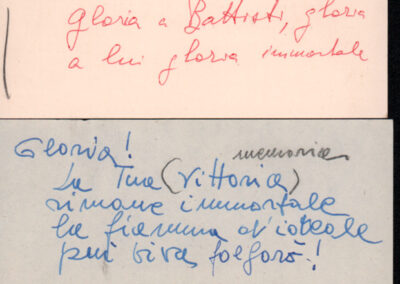 Gloria a Battisti, gloria
a lui gloria immortale
Gloria!
memoria
La Tua (Vittoria)
rimane immortale
la fiamma d'ideale
più viva folgorò!